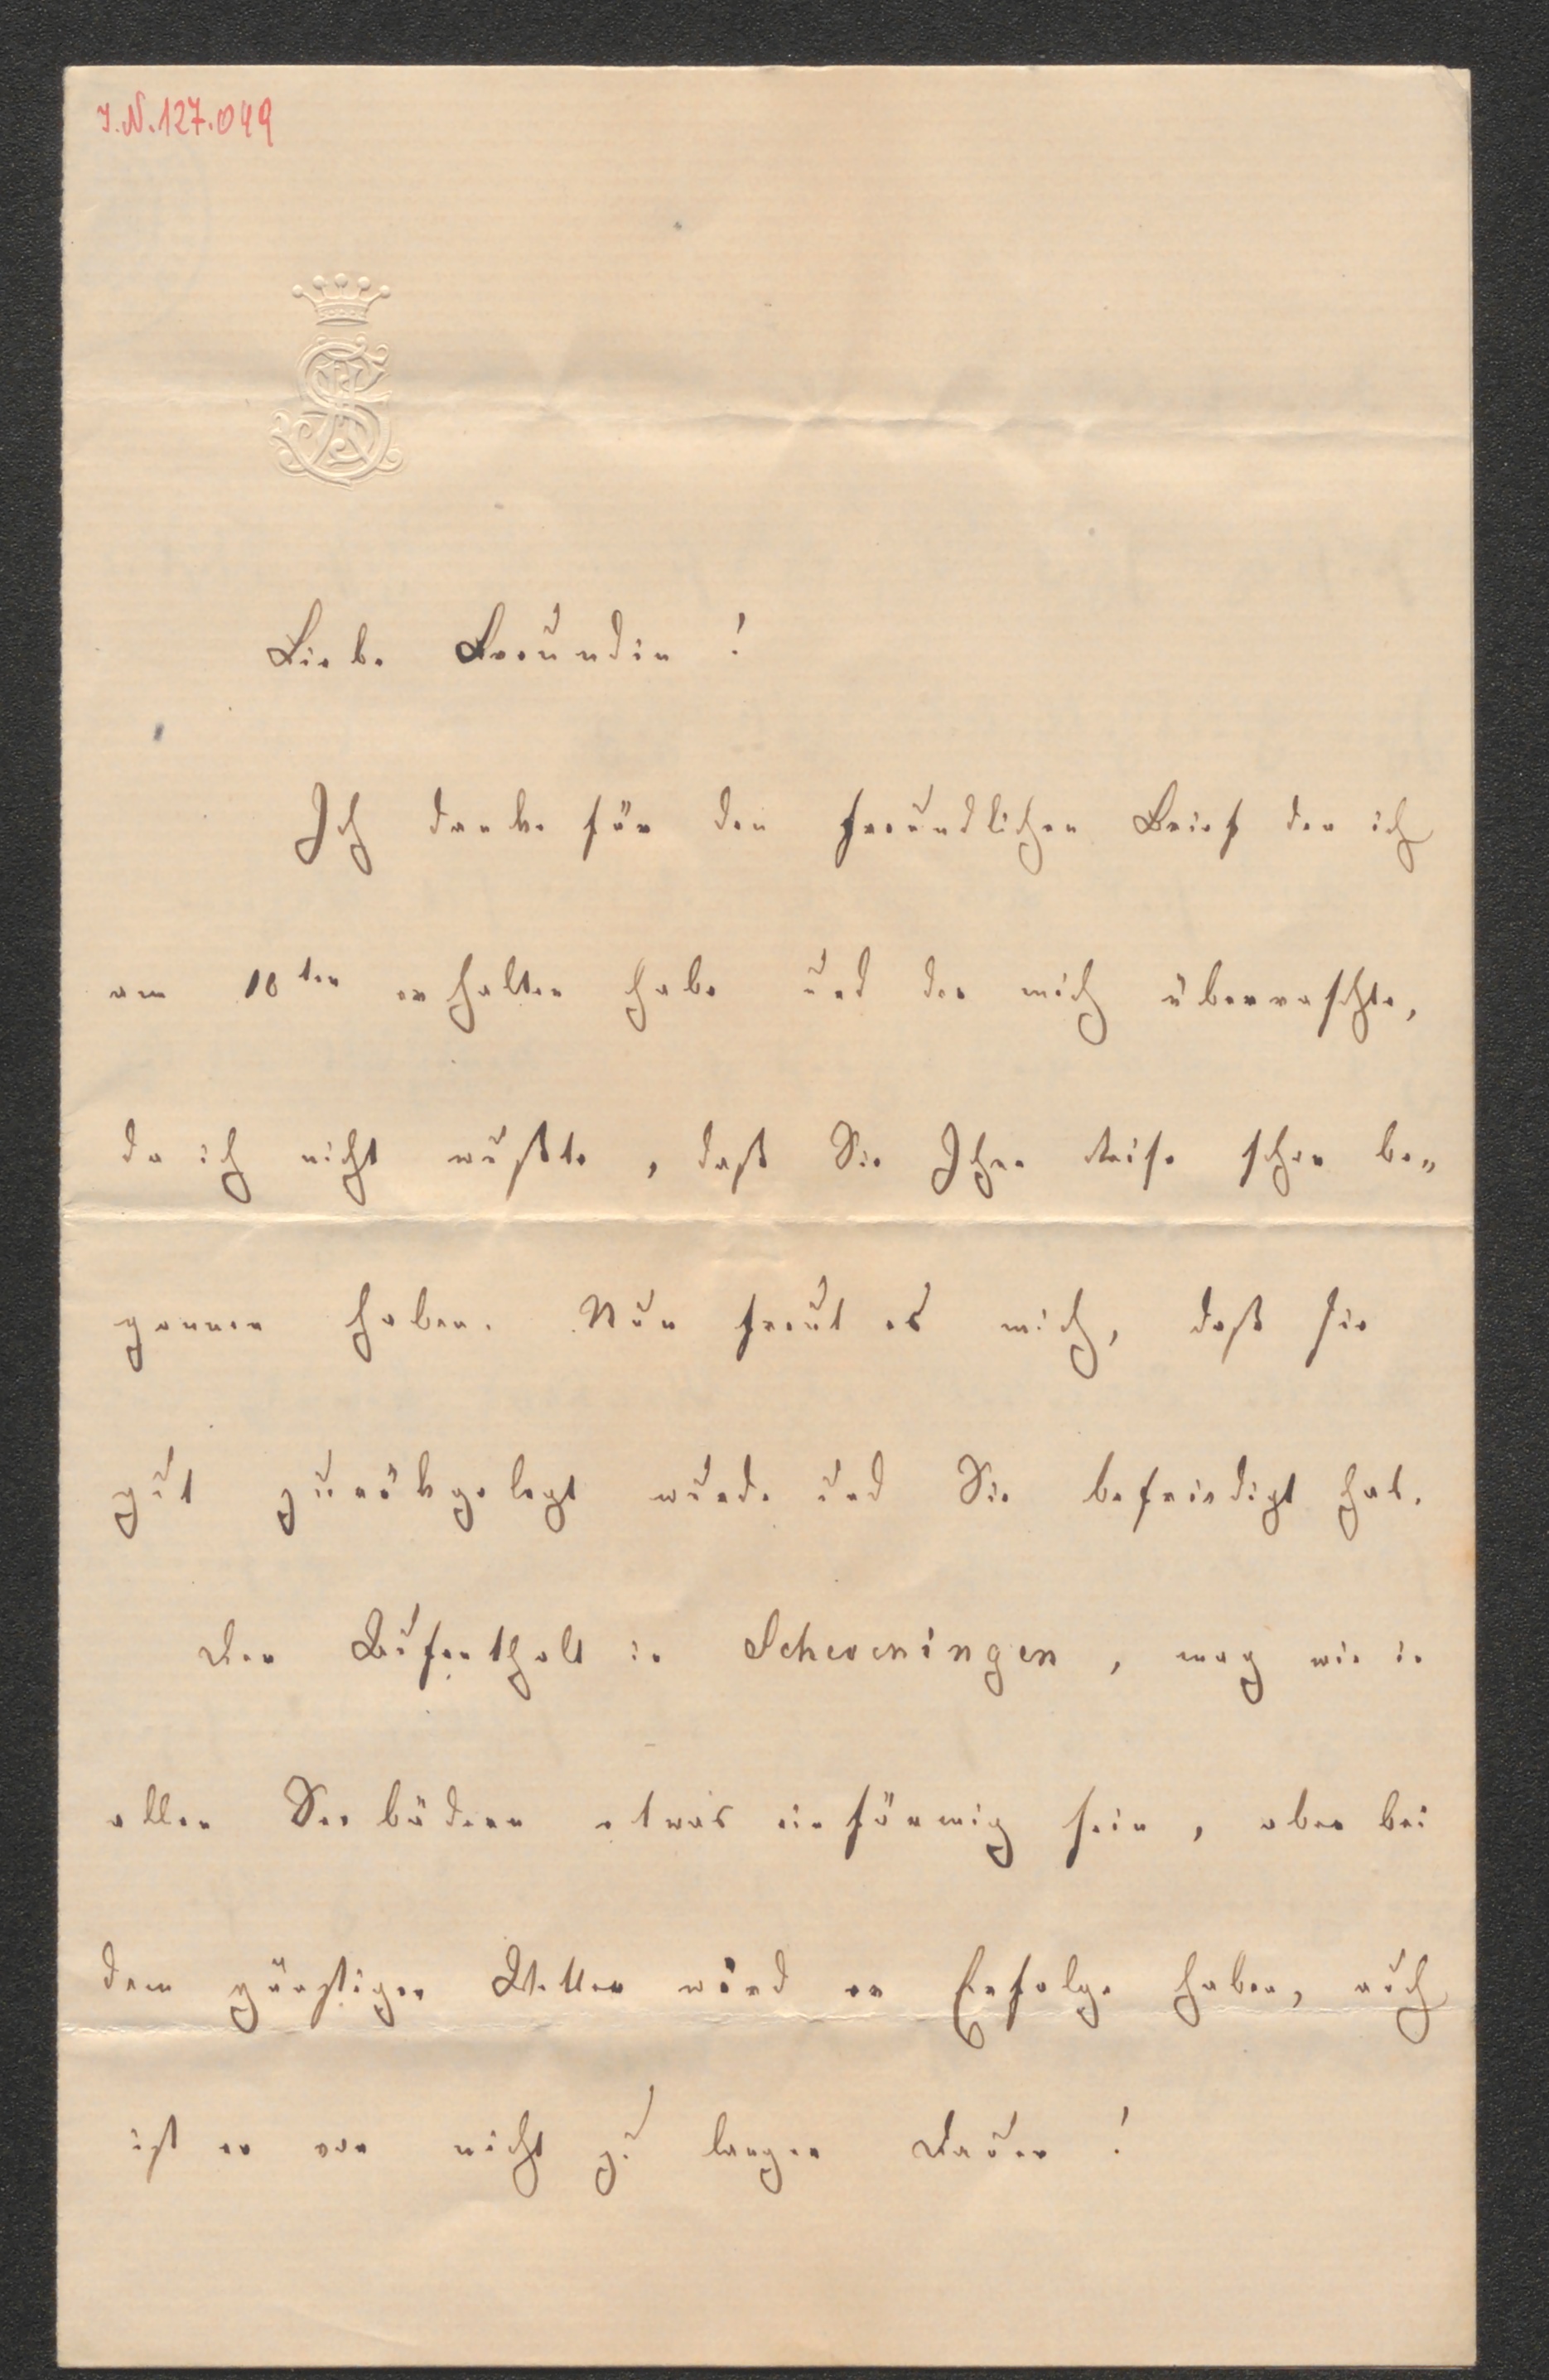 I.N. 127.049
Liebe Freundin !
Ich danke für den freundlichen Brief den ich
am 10ten erhalten habe und der mich überraschte,
da ich nicht wußte, daß Sie Ihre Reise schon be„
gonnen haben. Nun freut es mich, daß sie
gut zurükgelegt wurde und Sie befriedigt hat.
Der Aufenthalt in Scheveningen, mag wie in
allen Seebädern etwas einförmig sein, aber bei
dem günstigen Wetter wird er Erfolge haben, auch
ist er von nicht zu langer Dauer !